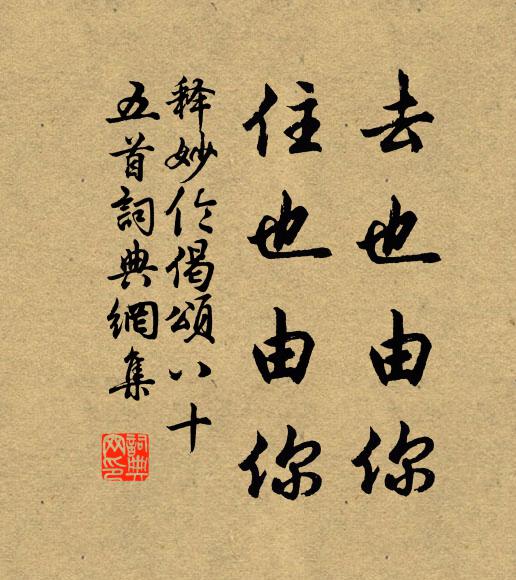 去也由你
住也由你
释妙伦偈颂八十
五首詞典網集
詞典
网印